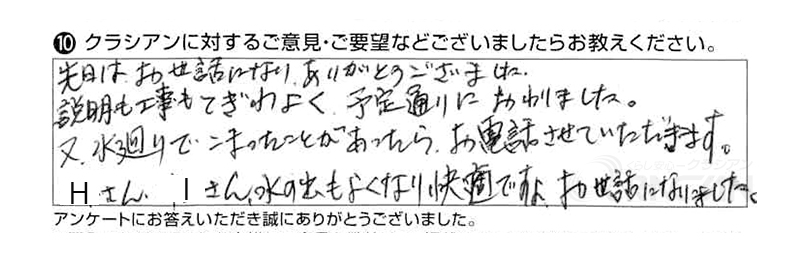 ⑩ クラシアンに対するご意見・ご要望などございましたらお教えください。
先日はお世話になり、ありがとうございました。
説明も工事もてぎわよく、予定通りにおわりました。
又、水廻りでこまったことがあったら、お電話させていただきます。
Hさん、Iさん、水の出もよくなり快適ですよ。お世話になりました。
アンケートにお答えいただき誠にありがとうございました。